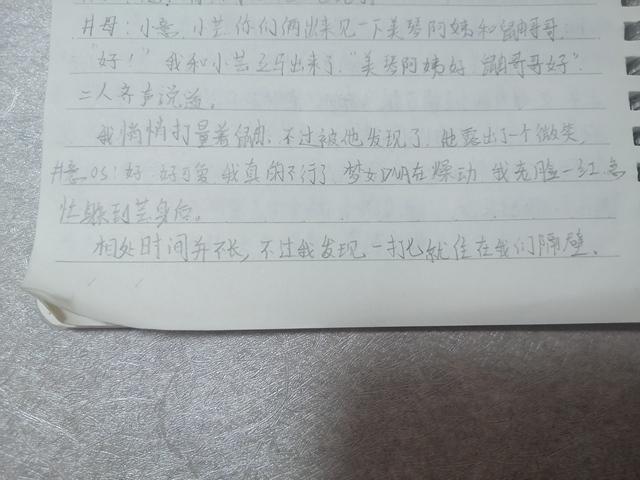 井母：小意，小芸你们俩出来见一下美琴阿姨和鼬哥哥.
"好！"我和小芸立马出来了."美琴阿姨好，鼬哥哥好".
二人齐声说道。
我悄悄打量着, 不过被他发现了, 他露出了一个微笑,
井意.os：好 好可爱 我真的不行了, 梦女DNA在燥动 我 脸一红,急
忙躲到芸身后。
相处时间并不长, 不过我发现 一打七就住在我们隔壁.